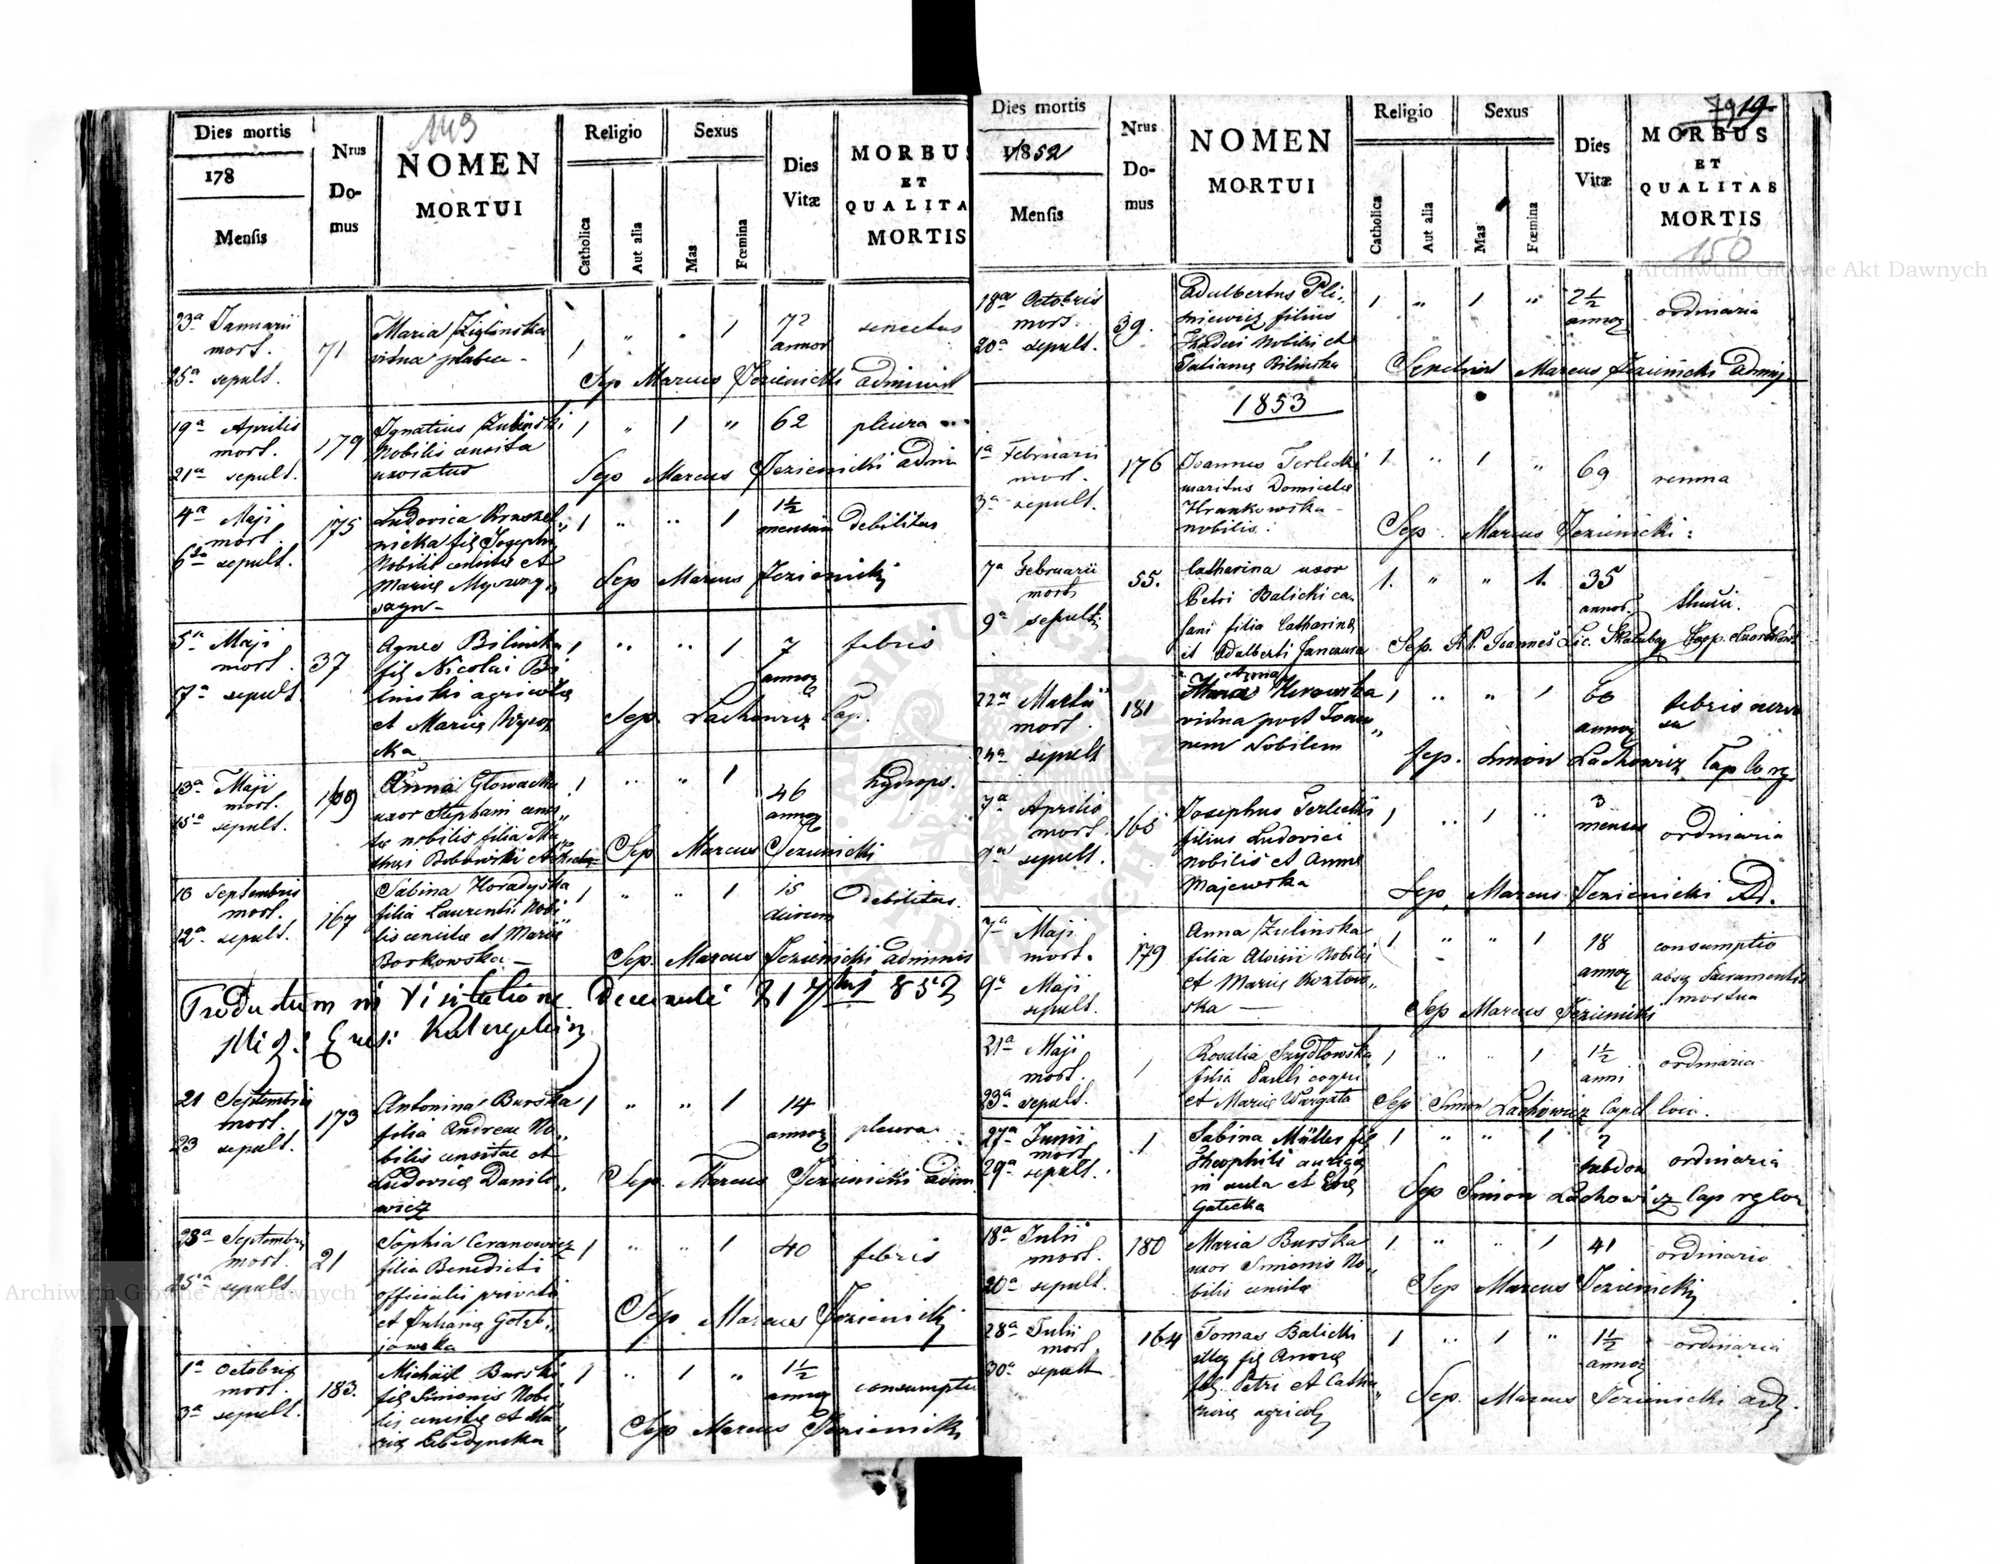 149
Dies mortis
178
Mensis
Nrus
Do-
mus
NOMEN
MORTUI
Religio
Catholica
Aut alia
Sexus
Mas
Fœmina
Dies
Vitæ
MORBUS
ET
QUALITA
MORTIS
23a Januarii
mort.
25a sepult.
71
Maria Ziglinska
vidua
1 " " 1
72
annor
senectus
Sep Marcus Jezienicki administ
19a Aprilis
mort.
21a sepult.
179
Ignatius Zulinski
Nobilis censita
uxoratus
1 " 1 "
62
pleura
Sep Marcus Jezienicki admi
4a Maji
mort.
6ta sepult.
175
Ludovica
nicka fil Josephi
Nobilis censitæ et
Mariæ
1 " " 1
1½
mensium
debilitas
Sep Marcus Jezienicki
5a Maji
mort.
7a sepult
37
Agnes Bilinska
fil Nicolai Bi
linski agricolæ
et Mariæ Wysoc
ka
1 " " 1
7
annor
febris
Sep. Lachowicz Cap.
13a Maji
mort.
15a sepult.
169
Anna Głowacka
uxor Stephani censi
tæ nobilis filia Ma
thæi Bobowski et
1 " " 1
46
annor
hydrops.
Sep Marcus Jezienicki
10 Septembris
mort.
12a sepult.
167
Sabina Horadyska
filia Laurentii Nobi
lis censitæ et Mariæ
Borkowska —
1 " " 1
15
dierum
debilitas.
Sep. Marcus Jezienicki adminis
Productum in Visitatione Decanali 21 7bri 852
21 Septembris
mort.
23 sepult.
173
Antonina Burska
filia Andreae No
bilis censitae et
Ludovicæ Danilo
wicz
1 " " 1
14
annor
pleura
Sep Marcus Jezienicki admi
23a Septembris
mort.
25a sepult.
21
Sophia Ceranowicz
filia Benedicti
officialis privati
et Julianæ Gołęb
jowska
1 " " 1
40
febris
Sep Marcus Jezienicki
1a Octobris
mort.
3a sepult.
183.
Michael Burski
fil Simonis Nobi
lis censitæ et Ma
riæ Lebedynska
1 " 1 "
1½
annor
consumptio
Sep Marcus Jezienicki
19
Dies mortis
1852
Mensis
Nrus
Do-
mus
NOMEN
MORTUI
Religio
Catholica
Aut alia
Sexus
Mas
Fœmina
Dies
Vitæ
MORBUS
ET
QUALITAS
MORTIS
150
18a Octobris
mort.
20a sepult.
39.
Adalbertus Pli
niewicz filius
Thadæi Nobilis et
Julianæ Bilinska
1 " 1 "
2½
annor
ordinaria
Sepelivit Marcus Jezienicki admi
1853
1a Februarii
mort.
3a sepult.
176
Joannes Terlecki
maritus Domicelæ
Hrankowska
nobilis.
1. " 1 "
69
Sep. Marcus Jezienicki
7a Februarii
mort
9a sepult.
55.
Catharina uxor
Petri Balicki ca
sani filia Catharinæ
et Adalberti Janczura
1. " " 1.
35
annor.
Sep. R. P. Joannes
22a Martii
mort.
24a sepult
181
Anna
vidua post Joan
nem Nobilem
1 " " 1
60
annor
febris nervo
sa
Sep. Simon Lachowicz Cap
7a Aprilis
mort.
9a sepult.
165
Josephus Terlecki
filius Ludovici
nobilis et Annæ
Majewska
1 " 1 "
3
menses
ordinaria
Sep. Marcus Jezienicki Ad.
7a Maji
mort.
9a Maji
sepult.
179
Anna Zulinska
filia Aloisii Nobilis
et Mariæ Kozłow
ska —
1 " " 1
18
annor
consumptio
absq Sacramentis
mortua
Sep Marcus Jezienicki
21a Maji
mort.
23a sepult.
1
Rosalia Szydłowska
filia Pauli coqui
et Mariæ Wargata
1 " " 1
1½
anni
ordinaria
Sep Simon Lachowicz Capel loci.
27a Junii
mort.
29a sepult.
1
Sabina Müller fil
Theophili aurigæ
in aula et Evæ
Gatecka
1 " " 1
ordinaria
Sep Simon Lachowicz Cap
18a Julii
mort.
20a sepult.
180
Maria Burska
uxor Simonis No
bilis censitæ
1. " " 1
41
ordinaria
Sep Marcus Jezienicki
28a Julii
mort.
30a sepult
164
Tomas Balicki
1 " 1 "
1½
annor
ordinaria
Petri et Catha
rinæ agricol
Sep. Marcus Jezienicki ad
Archiwum Główne Akt Dawnych
Archiwum Główne Akt Dawnych